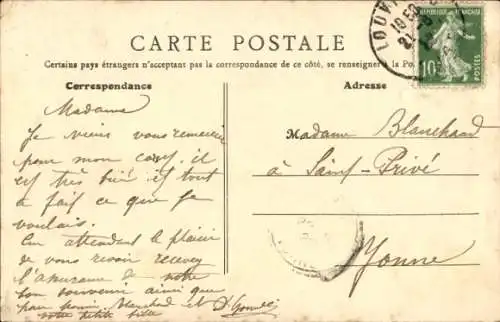 CARTE POSTALE
Certains pays étrangers n'acceptant pas la correspondance de ce côté, se renseigner à la Po
Correspondance
Adresse
RÉPUBLIQUE FRANÇAISE
10
LOUV
Madame
Je viens vous remercier
pour mon il
est très bié il tout
a fait ce que je
voulais.
En attendant le plaisir
de vous revoir recevez
l'assurance de notre
bon souvenir ainsi que
Marchand et
votre petite
Madame Blanchard
à Saint-Privé
Yonne